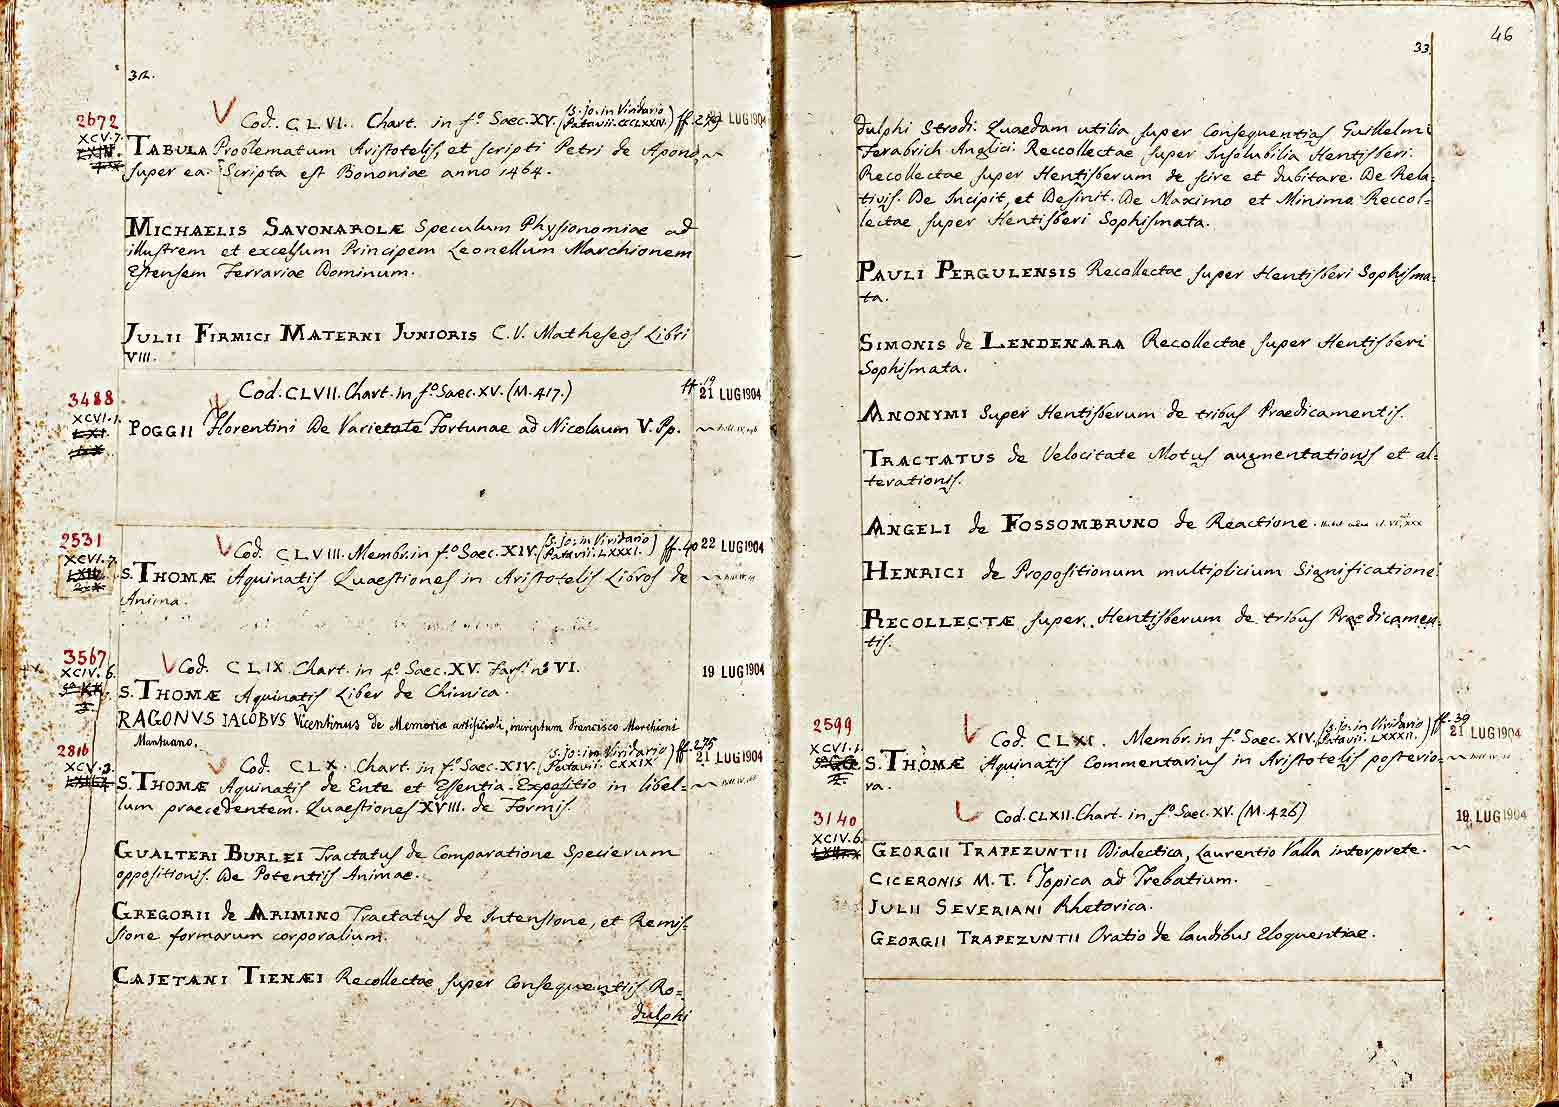 32.
2672
XCV.7.
Cod. CLVI. Chart. in fº Saec. XV. (S. Jo. in Viridario
Patavii. CCCLXXIV.) ff. LUG 1904
TABULA Problematum Aristotelis, et scripti Petri de Apono
super ea. Scripta est Bononiae anno 1464.
MICHAELIS SAVONAROLÆ Speculum Physionomiae ad
illustrem et excelsum Principem Leonellum Marchionem
Estensem Ferrariae Dominum.
JULII FIRMICI MATERNI JUNIORIS C. V. Matheseos Libri
VIII.
3488
XCVI.1.
Cod. CLVII. Chart. in fº Saec. XV. (M. 417.) ff. 19
21 LUG 1904
POGGII Florentini De Varietate Fortunae ad Nicolaum V. Pp.
2531
XCVI.7.
Cod. CLVIII. Membr. in fº Saec. XIV. (S. Jo: in Viridario
Patavii. LXXXI.) ff. 40 22 LUG 1904
S. THOMÆ Aquinatis Quaestiones in Aristotelis Libros de
Anima.
3567
XCIV.6.
Cod. CLIX. Chart. in 4º Saec. XV. Fars. nº VI. 19 LUG 1904
S. THOMÆ Aquinatis Liber de Chimica.
RAGONVS IACOBVS Vicentinus de Memoria artificiali, inscriptum Francisco Marchioni
Mantuano.
2816
XCV.3.
Cod. CLX. Chart. in fº Saec. XIV. (S. Jo: in Viridario
Patavii. CXXIX) ff. 275
21 LUG 1904
S. THOMÆ Aquinatis de Ente et Essentia. Expositio in libel=
lum praecedentem. Quaestiones XVIII. de Formis.
GUALTERI BURLEI Tractatus de Comparatione Specierum
oppositionis. De Potentiis Animae.
GREGORII de ARIMINO Tractatus de Intensione, et Remis=
sione formarum corporalium.
CAJETANI TIENÆI Recollectae super Consequentiis Ro=
dulphi
46
33.
dulphi Strodi: Quaedam utilia super Consequentias Guillelmi
Ferabrich Anglici. Reccollectae super Insolubilia Hentisberi.
Recollectae super Hentisberum de scire et dubitare. De Rela=
tivis. De Incipit, et Desinit. De Maximo et Minimo. Reccol=
lectae super Hentisberi Sophismata.
PAULI PERGULENSIS Recollectae super Hentisberi Sophisma=
ta.
SIMONIS de LENDENARA Recollectae super Hentisberi
Sophismata.
ANONYMI Super Hentisberum de tribus Praedicamentis.
TRACTATUS de Velocitate Motus augmentationis et al=
terationis.
ANGELI de FOSSOMBRUNO de Reactione.
HENRICI de Propositionum multiplicium Significatione.
RECOLLECTÆ super Hentisberum de tribus Praedicamen=
tis.
2599
XCVI.1.
Cod. CLXI. Membr. in fº Saec. XIV. (S. Jo. in Viridario
Patavii. LXXXII.) ff. 39
21 LUG 1904
S. THOMÆ Aquinatis Commentarius in Aristotelis posterio=
ra.
3140
XCIV.6.
Cod. CLXII. Chart. in fº Saec. XV. (M. 426) 19 LUG 1904
GEORGII TRAPEZUNTII Dialectica, Laurentio Valla interprete.
CICERONIS M. T. Topica ad Trebatium.
JULII SEVERIANI Rhetorica.
GEORGII TRAPEZUNTII Oratio de laudibus Eloquentiae.